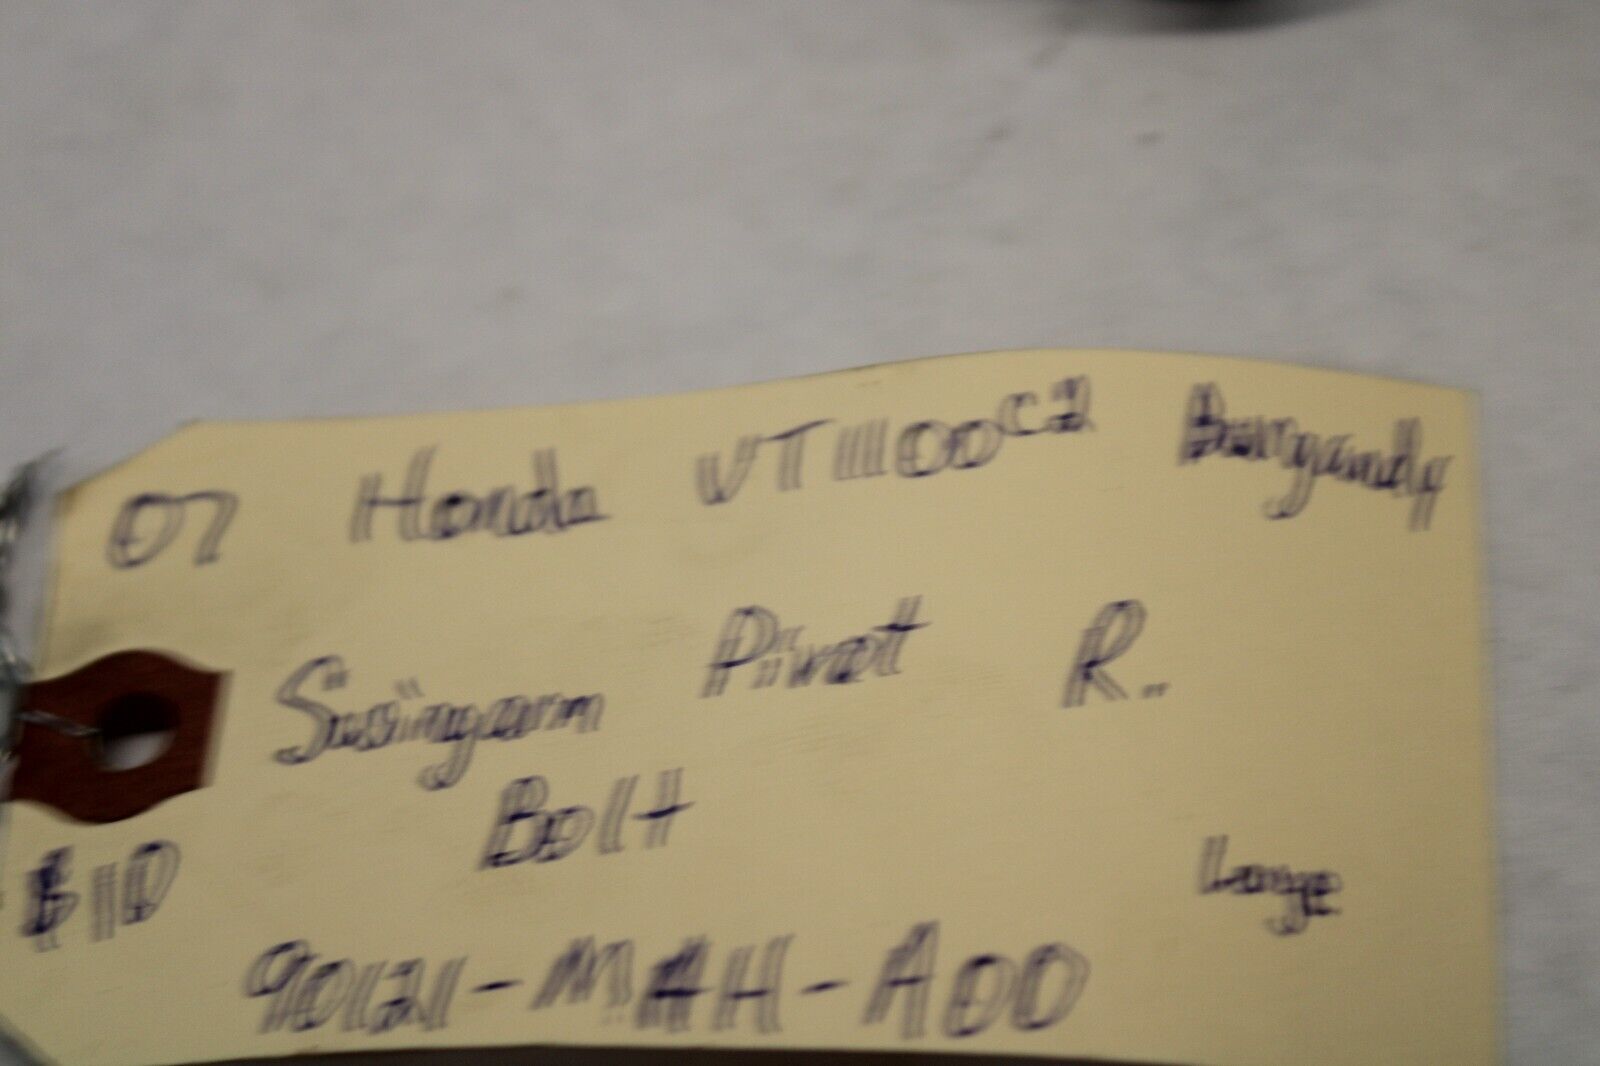 07 Honda VT1100C2 Burgandy
Swingarm Pivot R.
Bolt
$10
Large
90121-MAH-A00